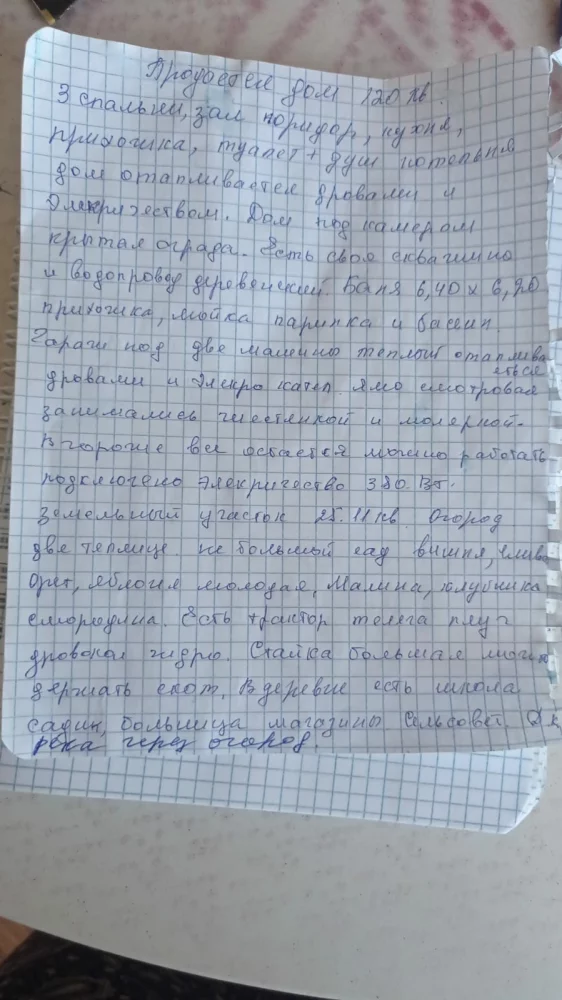 Продается дом 120 кв.
3 спальни, зал коридор, кухня,
прихожка, туалет + душ котельня
дом отапливается дровами и
Элекричеством. Дом под камерам
крытая ограда. Есть своя скважина
и водопровод деревенский. Баня 6,40 х 6,20
прихожка, мойка парилка и басейн.
Гаражи под две машины теплый отаплива
еться
дровами и элекро котел. яма смотровая
занимались жестянкой и молярной.
В гороже все остается можно работать
подключено элекричество 380 Вт.
Земельный участок 25.11 кв. Огород
две теплице. не большой сад вишня, слива
орех, яблоня молодая, малина, клубника
смородина. Есть трактор телега плуг
дровокол гидро. Стайка большая можно
держать скот, в деревне есть школа
садик, больница магазины Сельсовет. ДК
река через огород.